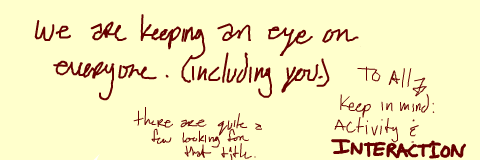 We are keeping an eye on
everyone. (including you.)
there are quite a
few looking for
that title.
To All
Keep in mind:
Activity &
INTERACTION